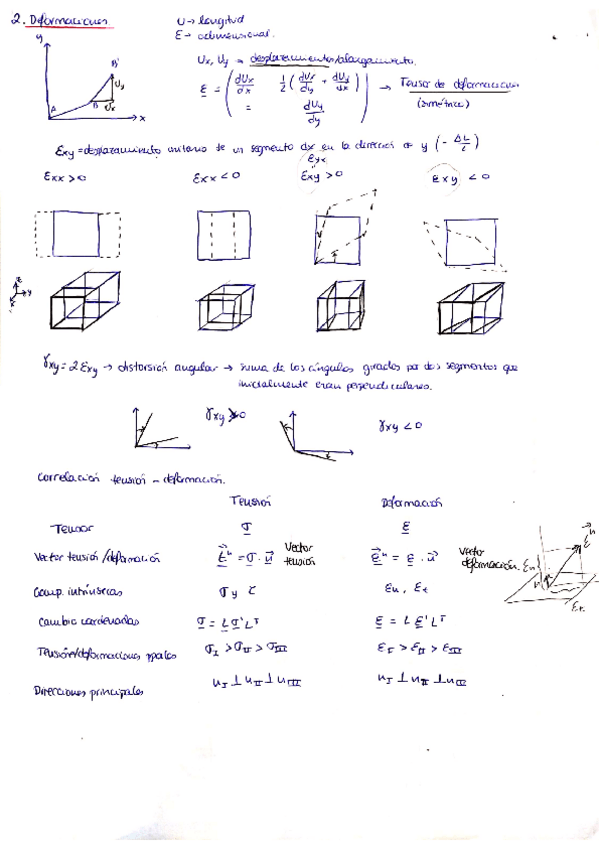 2. Deformaciones
U → longitud
ε → adimensional.
y
B'
Uy
A
B
Ux
x
Ux, Uy → desplazamientos/alargamiento.
ε = ( dUx/dx 1/2 ( dUx/dy + dUy/dx ) = dUy/dy ) → Tensor de deformaciones
(simétrica)
Exy = desplazamiento unitario de un segmento dx en la dirección y ( - ΔL/L )
Eyx
Exx > 0 Exx < 0 Exy > 0 Exy < 0
z
y
x
γxy = 2Exy → distorsión angular → suma de los ángulos girados por dos segmentos que
inicialmente eran perpendiculares.
γxy > 0 γxy < 0
Correlación tensión - deformación.
Tensión Deformación
Tensor σ ε
Vector tensión/deformación t^n = σ · n Vector tensión ε^n = ε · n Vector deformación. En
ε^n
n
Et
Comp. intrínsecas σ y τ En, Et
Cambio coordenadas σ = L σ' L^T ε = L ε' L^T
Tensión/deformaciones ppales σI > σII > σIII εI > εII > εIII
Direcciones principales uI ⊥ uII ⊥ uIII uI ⊥ uII ⊥ uIII